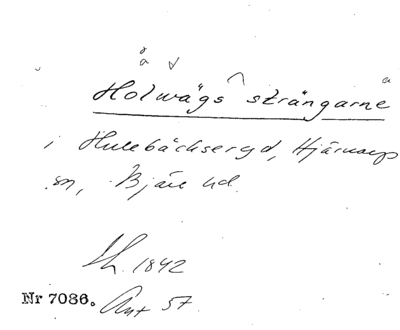 å v ^ a
Holwägs strängarne
i Hulebäckseryd, Hjärnarps
sn, Bjäre hd.
Sk. 1842
Nr 7086. Akt 57.